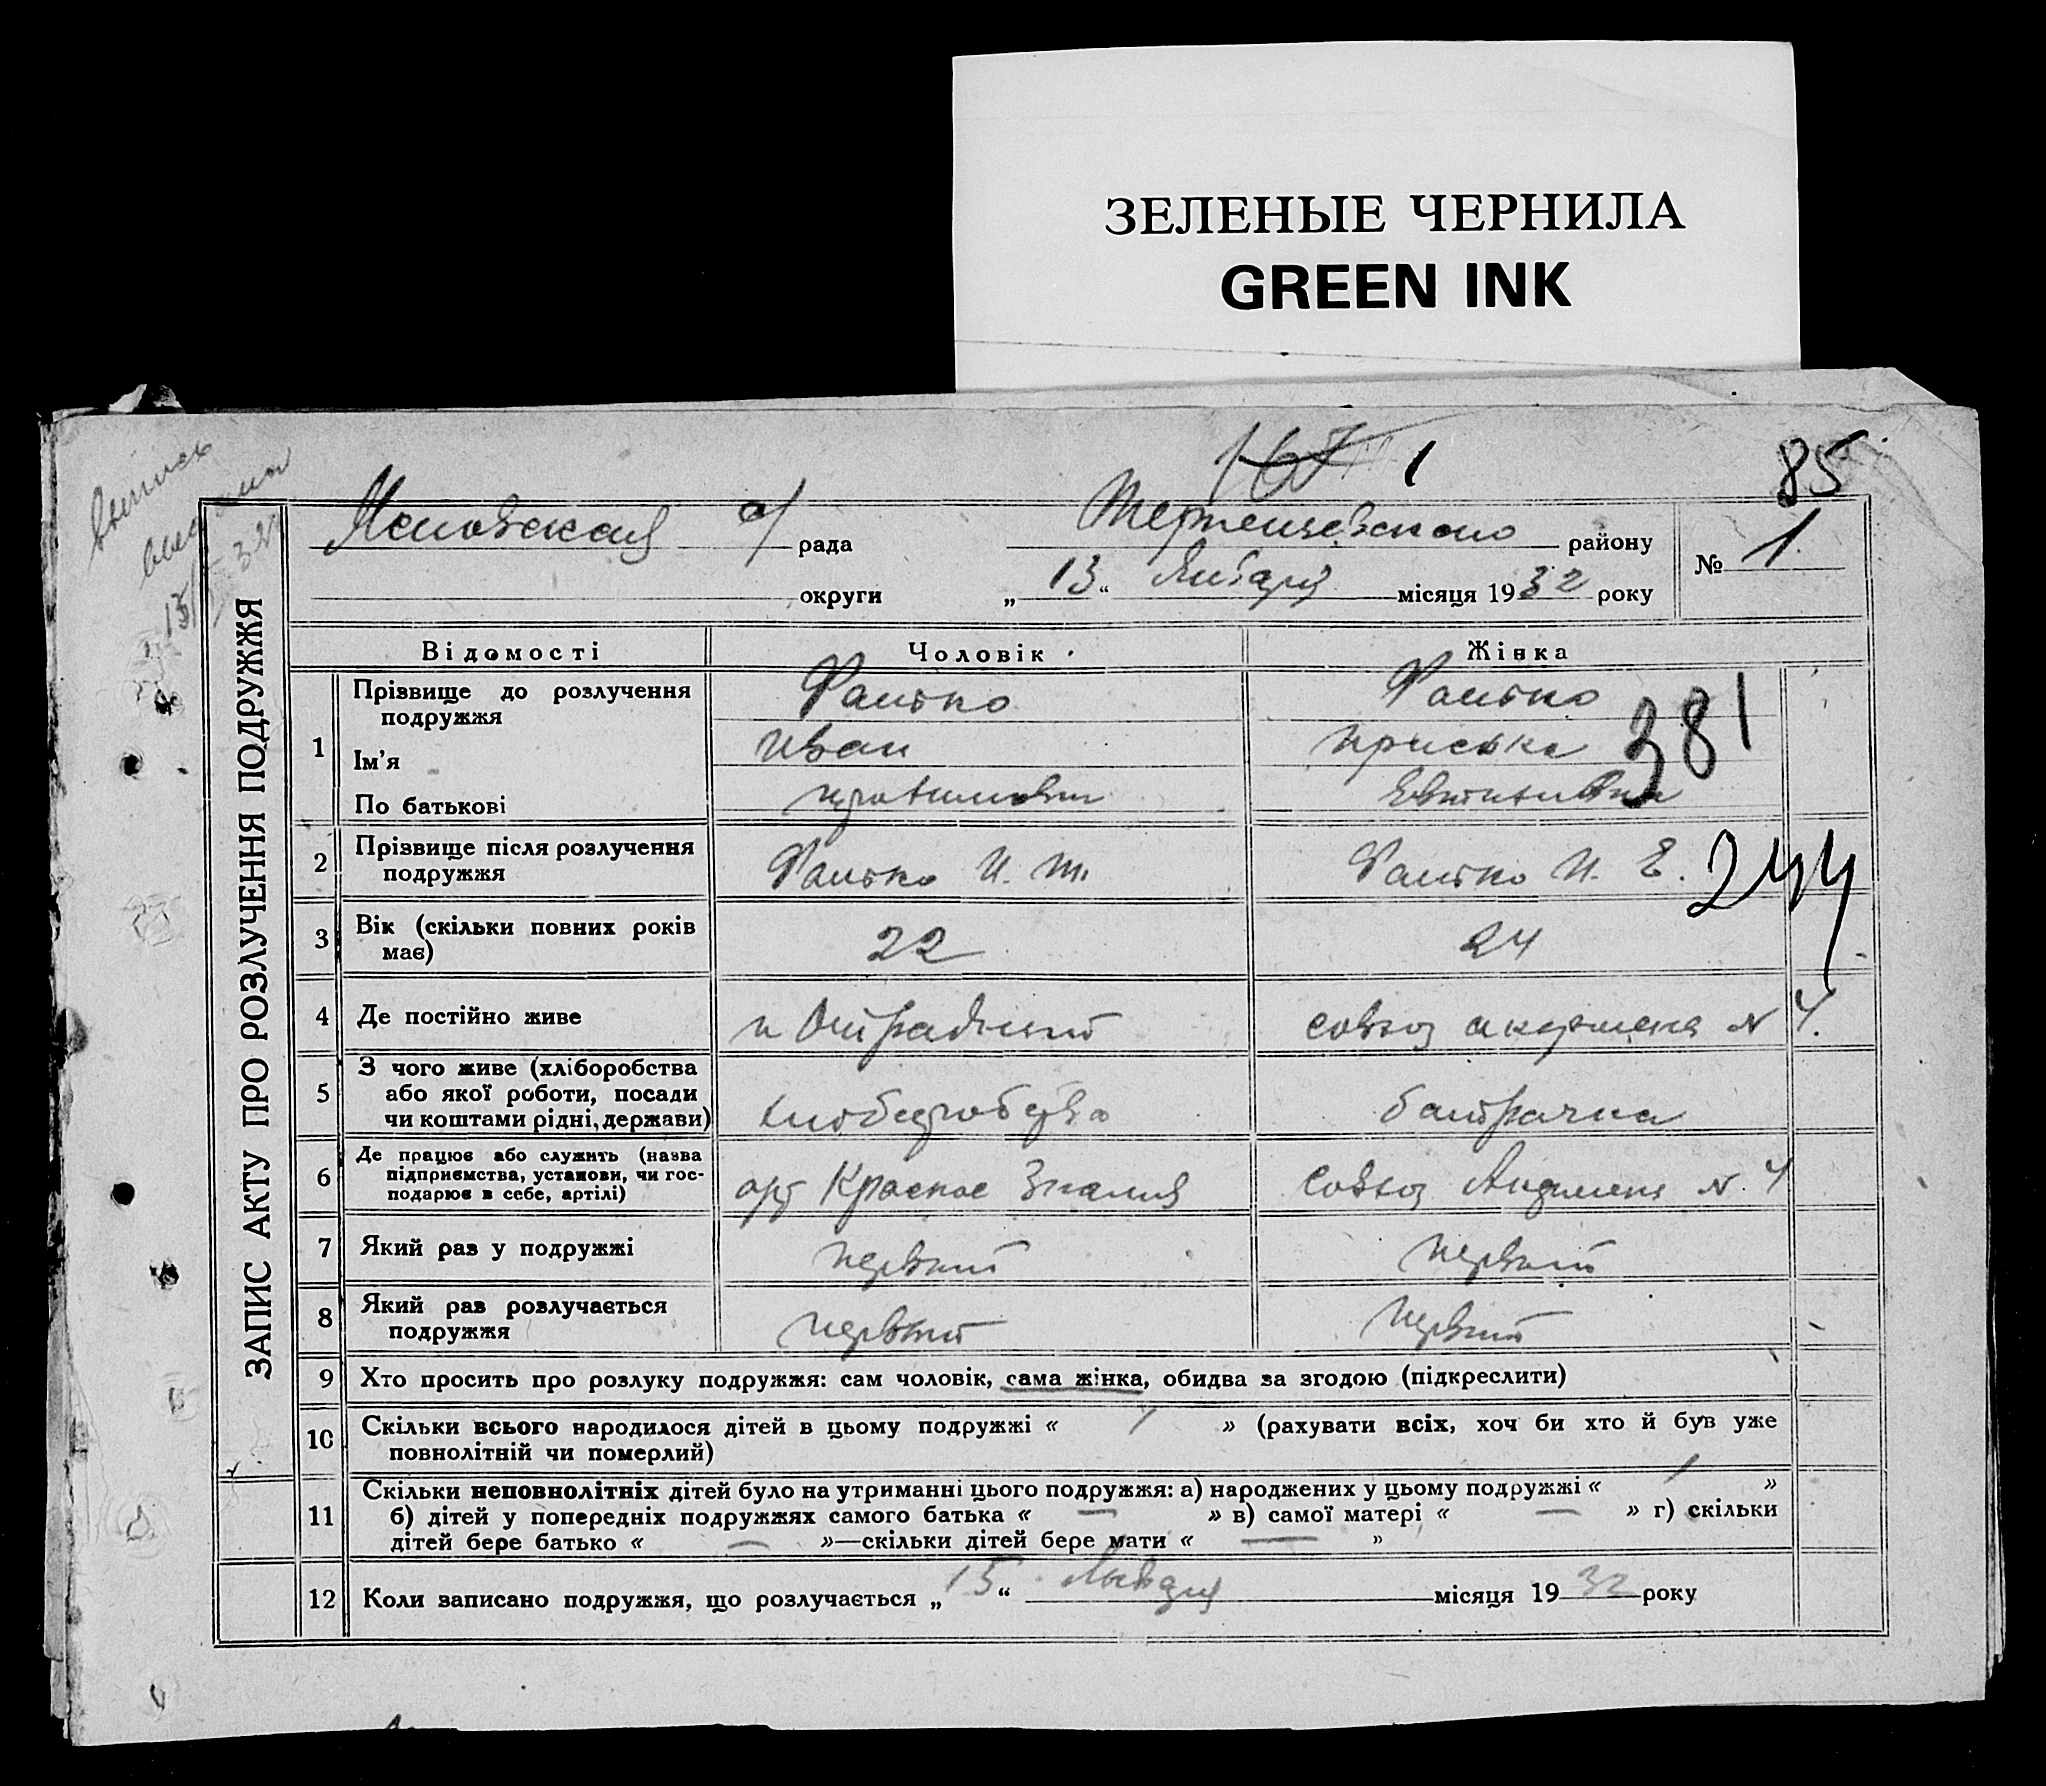 ЗЕЛЕНЫЕ ЧЕРНИЛА
GREEN INK
167 1
85
с/ рада района
району
№ 1
округи „13“ Января місяця 1932 року
ЗАПИС АКТУ ПРО РОЗЛУЧЕННЯ ПОДРУЖЖЯ
Відомості Чоловік Жінка
1 Прізвище до розлучення подружжя
Ім'я Иван Приська
381
По батькові
2 Прізвище після розлучення подружжя
244
3 Вік (скільки повних років має) 22 24
4 Де постійно живе совхоз № 4.
5 З чого живе (хліборобства або якої роботи, посади чи коштами рідні, держави) батрачка
6 Де працює або служить (назва підприємства, установи, чи господарює в себе, артілі) арт Красное Знамия совхоз № 4
7 Який раз у подружжі первый первый
8 Який раз розлучається подружжя первый первый
9 Хто просить про розлуку подружжя: сам чоловік, сама жінка, обидва за згодою (підкреслити)
10 Скільки всього народилося дітей в цьому подружжі « 1 » (рахувати всіх, хоч би хто й був уже
повнолітній чи померлий)
11 Скільки неповнолітніх дітей було на утриманні цього подружжя: а) народжених у цьому подружжі « 1 »
б) дітей у попередніх подружжях самого батька « — » в) самої матері « — » г) скільки
дітей бере батько « — »—скільки дітей бере мати « — »
12 Коли записано подружжя, що розлучається „15“ Января місяця 1932 року